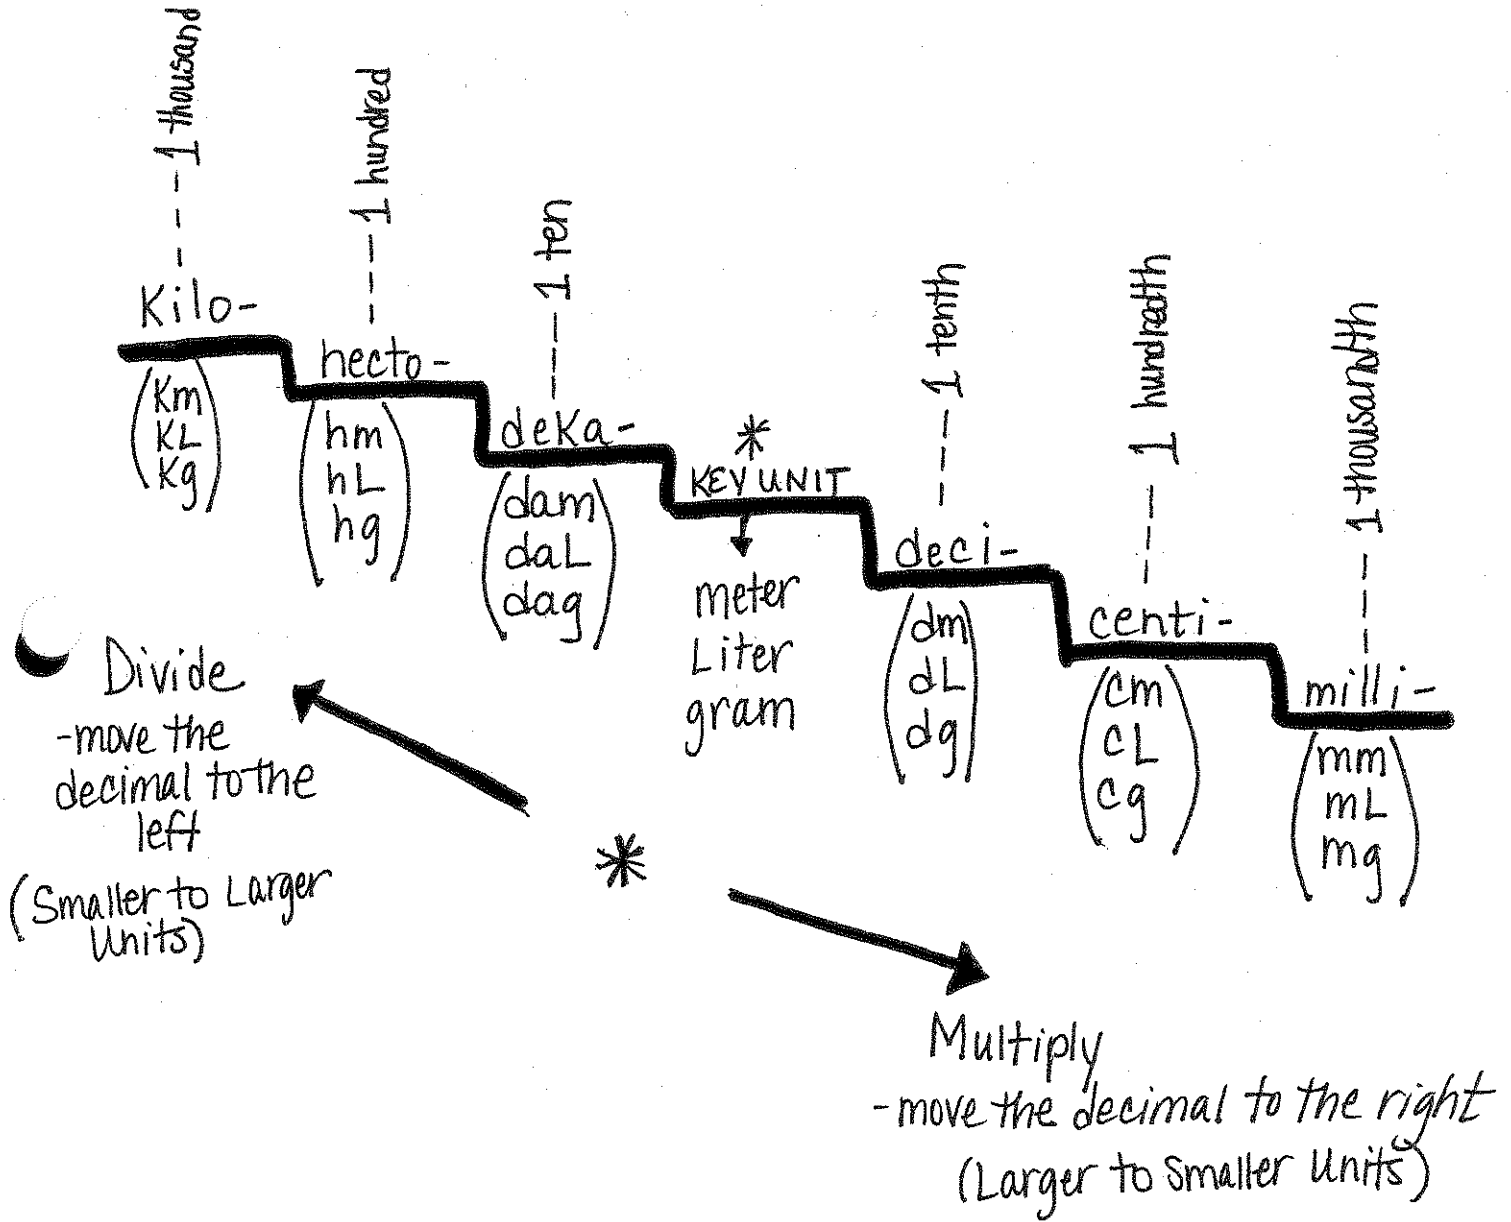 1 thousand
1 hundred
1 ten
1 tenth
1 hundredth
1 thousandth
Kilo-
(Km
KL
Kg)
hecto-
(hm
hL
hg)
deKa-
(dam
daL
dag)
*
KEY UNIT
meter
Liter
gram
deci-
(dm
dL
dg)
centi-
(cm
cL
cg)
milli-
(mm
mL
mg)
Divide
-move the
decimal to the
left
(Smaller to Larger
Units)
*
Multiply
-move the decimal to the right
(Larger to Smaller Units)